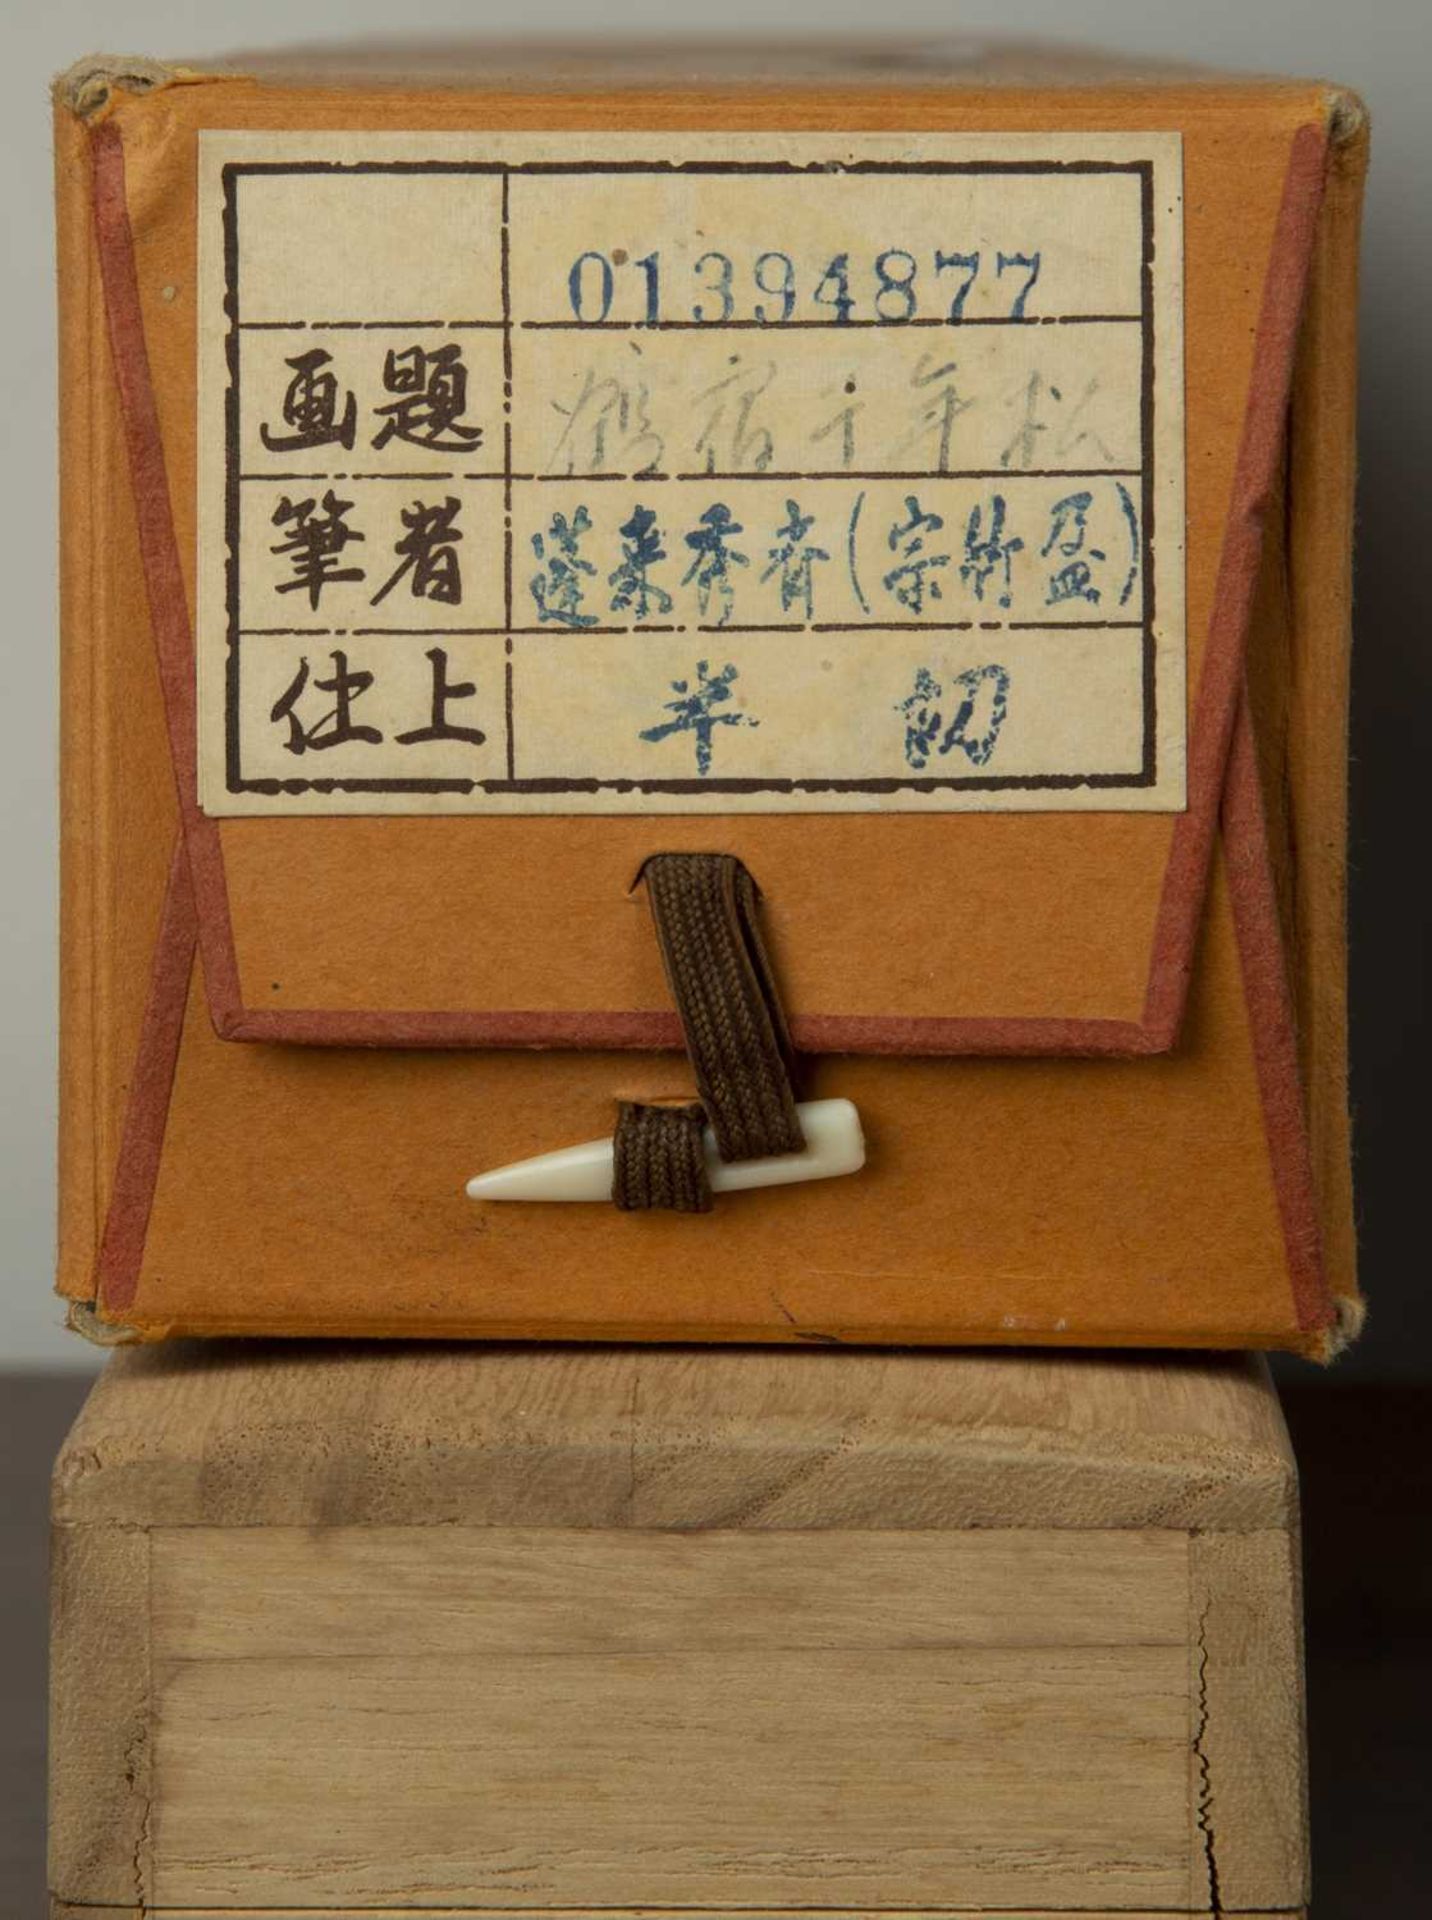 01394877
画題 鶴宿千年松
筆者 蓬来秀斉(宗竹盈)
仕上 半切